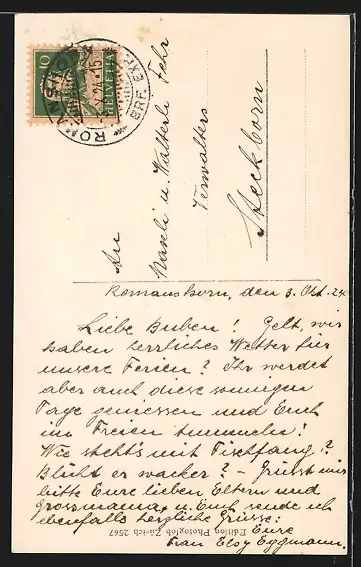 10
HELVETIA
ROMANSHORN
BRF. EXP.
An
Naseli u. Walterli Fehr
Verwalters
Steckborn
Romanshorn, den 3. Okt. 24
Liebe Buben! Gelt, wir
haben herrliches Wetter für
unsere Ferien? Ihr werdet
aber auch diese sonnigen
Tage geniessen und Euch
im Freien tummeln!
Wie steht's mit Fischfang?
Blüht er wacker? - Grüsst mir
bitte Eure lieben Eltern und
Grossmama, u. Euch sende ich
ebenfalls herzliche Grüsse:
Eure
Frau Elsy Eggmann.
Edition Photoglob Zürich 2567